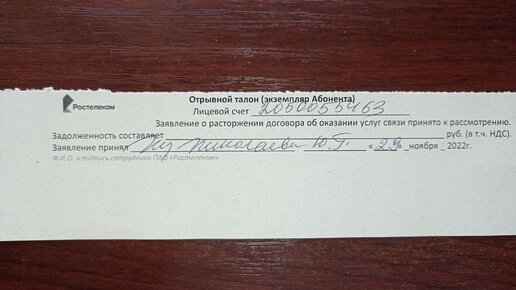 Ростелеком
Отрывной талон (экземпляр Абонента)
Лицевой счет 2050055463
Заявление о расторжении договора об оказании услуг связи принято к рассмотрению.
Задолженность составляет руб. (в т.ч. НДС).
Заявление принял Николаева Ю.Г. « 29 » ноября 2022г.
Ф.И.О. и подпись сотрудника ПАО «Ростелеком»